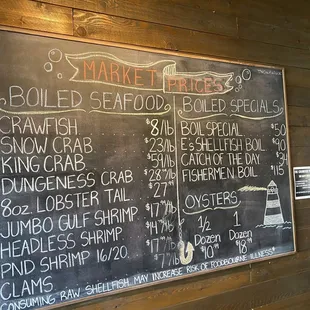 MARKET PRICES
BOILED SEAFOOD
CRAWFISH $8/lb
SNOW CRAB $23/lb
KING CRAB $59/lb
DUNGENESS CRAB
8oz. LOBSTER TAIL
JUMBO GULF SHRIMP
HEADLESS SHRIMP
PND SHRIMP 16/20
CLAMS
BOILED SPECIALS
BOIL SPECIAL $50
E's SHELLFISH BOIL $90
CATCH OF THE DAY
FISHERMEN BOIL $115
OYSTERS
1/2 Dozen 1 Dozen
$10.00 $18.00
CONSUMING RAW SHELLFISH MAY INCREASE RISK OF FOODBOURNE ILLNESS